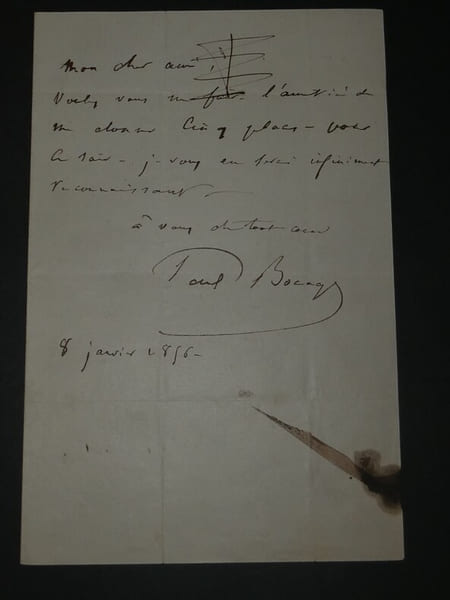 mon cher ami,
Voulez vous me faire l'amitié de
me donner Cinq places pour
ce soir - je vous en serai infiniment
reconnaissant
à vous de tout cœur
Paul Bocage
8 janvier 1856